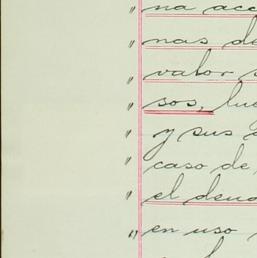 " na acc
" nas de
" valor s
" sos, lu
" y sus
" caso de
" el deud
" en uso